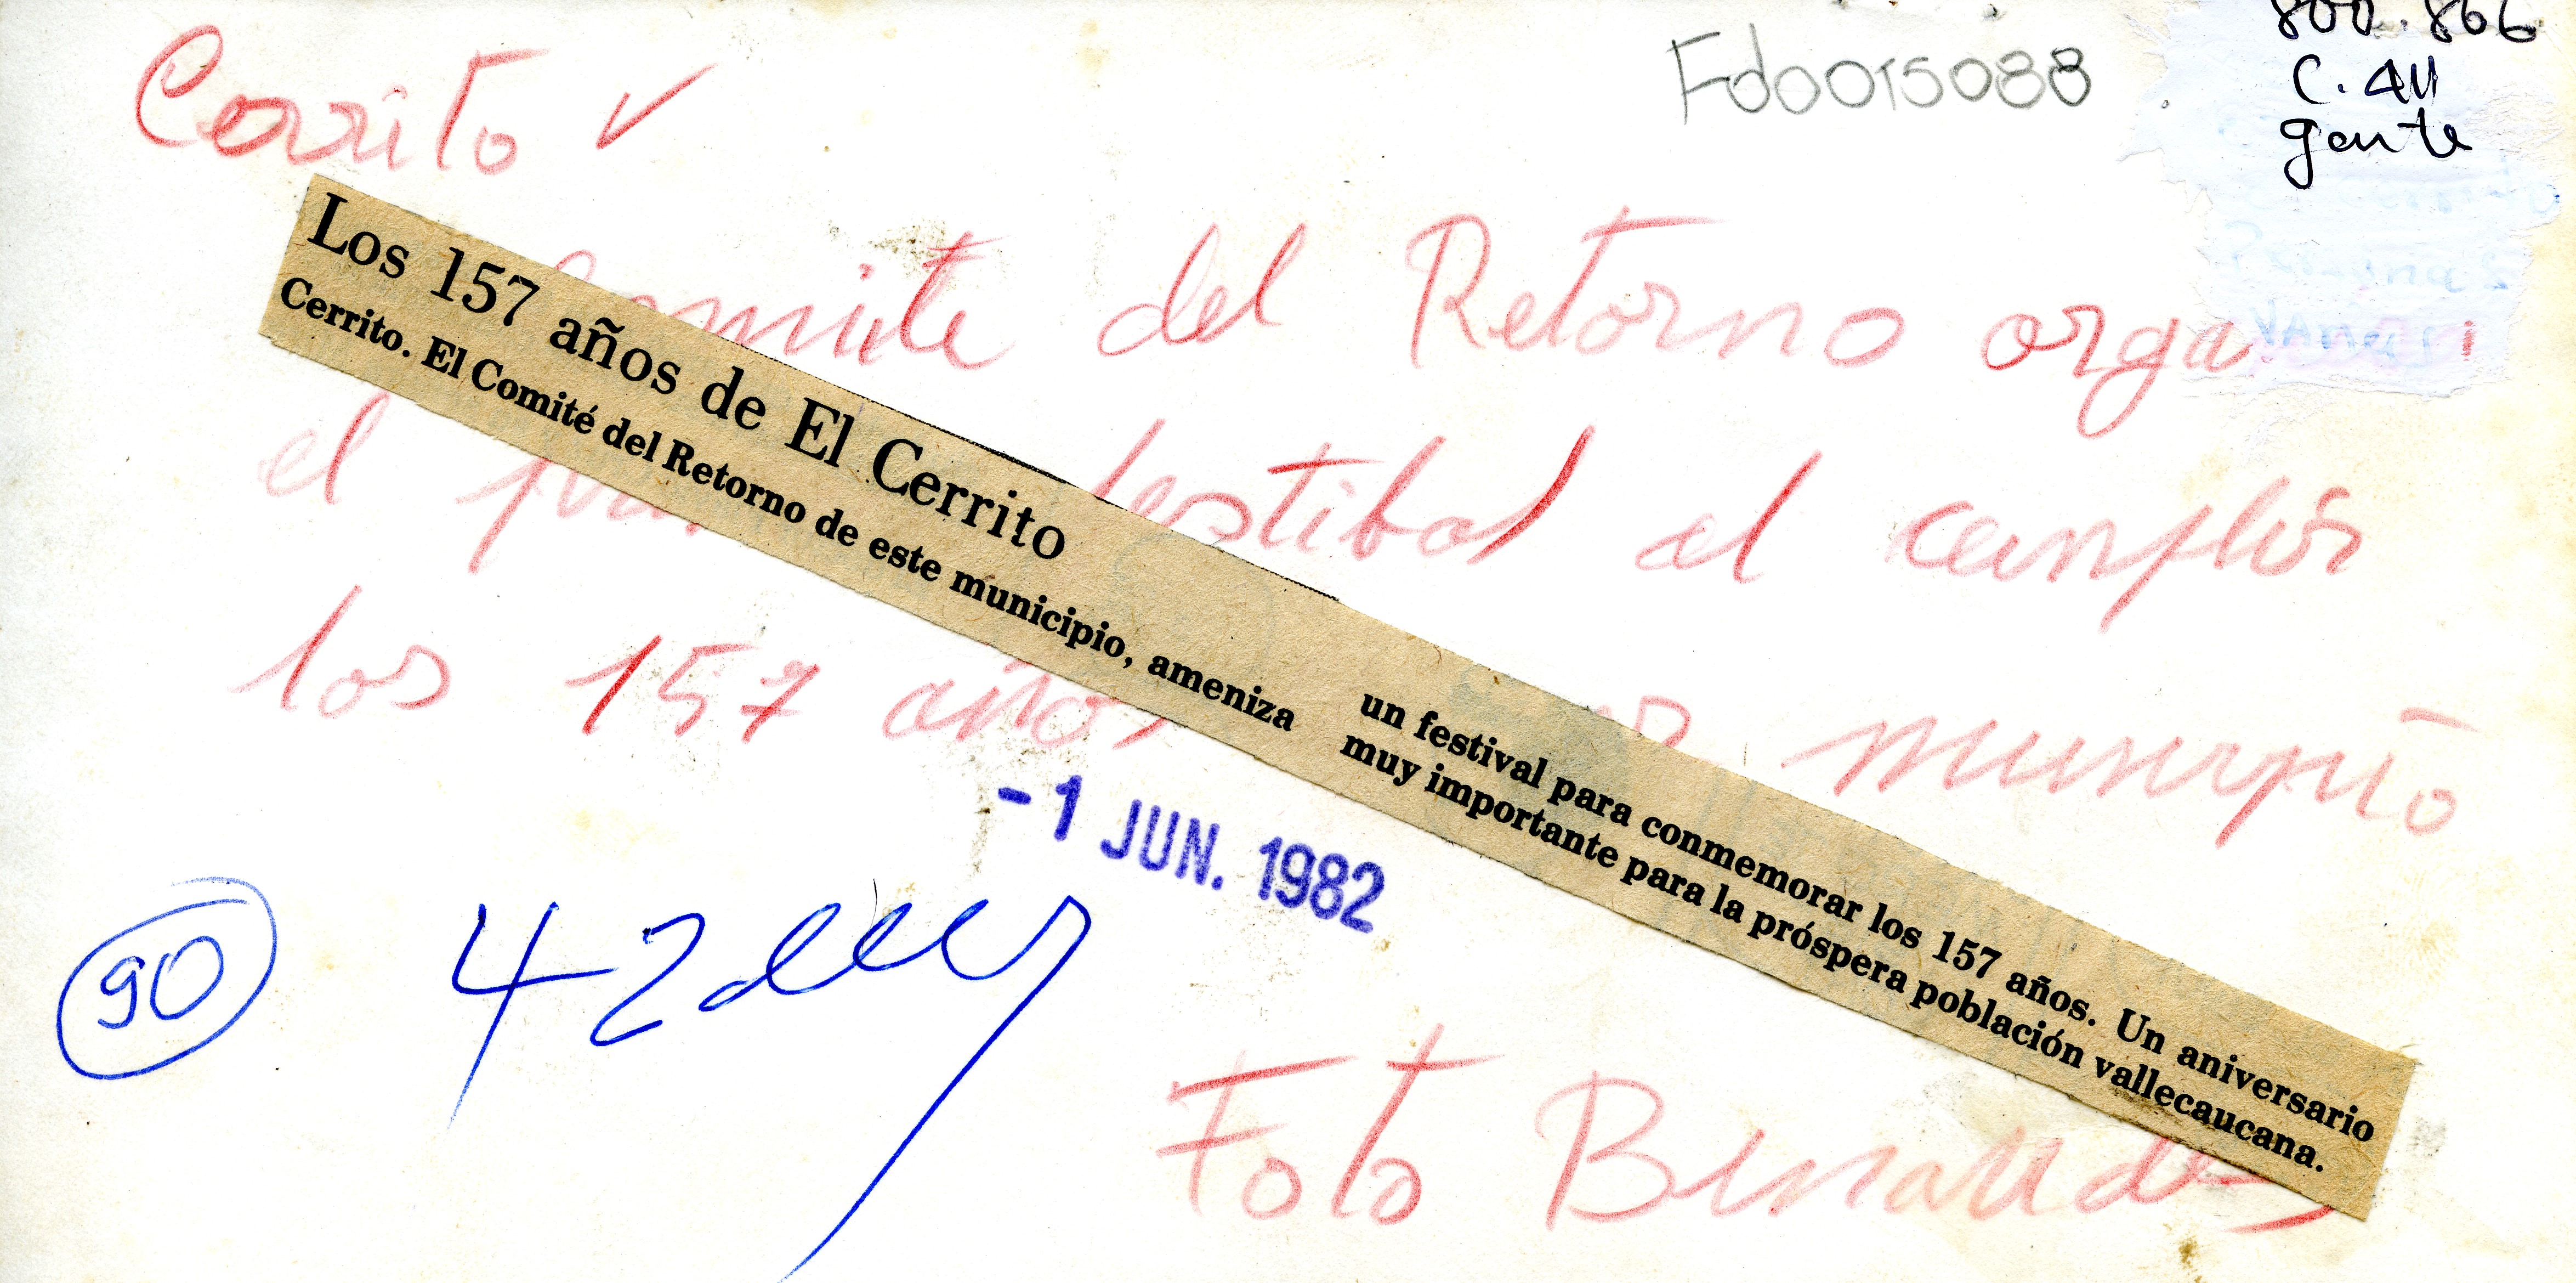 800.866
C. All
gente
Fd0015088
Cerrito ✓
Comite del Retorno orga
el festibal al cumplir
los 157 años municipio
Los 157 años de El Cerrito
Cerrito. El Comité del Retorno de este municipio, ameniza
un festival para conmemorar los 157 años. Un aniversario
muy importante para la próspera población vallecaucana.
-1 JUN. 1982
90
42
Foto